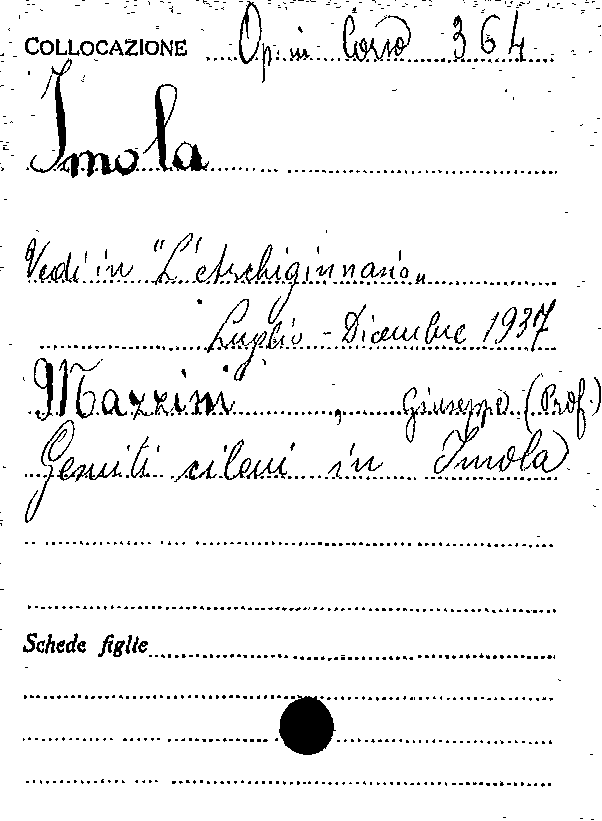 COLLOCAZIONE Op. in Corso 364
Imola
Vedi in "L'Archiginnasio"
Luglio - Dicembre 1937
Mazzini, Giuseppe (Prof.)
Gesuiti cileni in Imola
Schede figlie